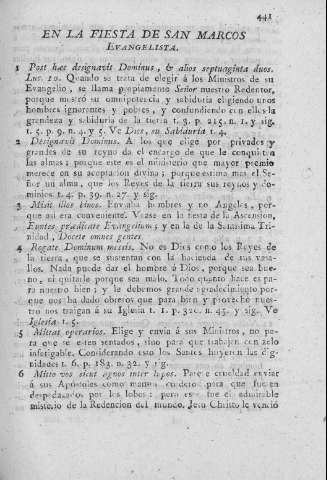 441
EN LA FIESTA DE SAN MARCOS
EVANGELISTA.
1 Post hæc designavit Dominus, & alios septuaginta duos.
Luc. 10. Quando se trata de elegir á los Ministros de su
Evangelio, se llama propiamente Señor nuestro Redentor,
porque mostró su omnipotencia y sabiduria eligiendo unos
hombres ignorantes y pobres, y confundiendo con ellos la
grandeza y sabiduria de la tierra t. 3. p. 215. n. 1. y sig.
t. 5. p. 9. n. 4. y 5. Ve Dios, su Sabiduria t. 4.
2 Designavit Dominus. A los que elige por privados y
grandes de su reyno da el encargo de que le conquisten
las almas; porque este es el ministerio que mayor premio
merece en su aceptacion divina; porque estima mas el Se-
ñor un alma, que los Reyes de la tierra sus reynos y do-
minios t. 4. p. 39. n. 27. y sig.
3 Misit illos binos. Enviaba hombres y no Angeles, por-
que asi era conveniente. Vease en la fiesta de la Ascension,
Euntes prædicate Evangelium; y en la de la Santisima Tri-
nidad, Docete omnes gentes.
4 Rogate Dominum messis. No es Dios como los Reyes de
la tierra, que se sustentan con la hacienda de sus vasa-
llos. Nada puede dar el hombre á Dios, porque sea bue-
no, ni quitarle porque sea malo. Todo quanto hace es pa-
ra nuestro bien; y le debemos grande agradecimiento por-
que nos ha dado obreros que para bien y provecho nues-
tro nos traigan á su Iglesia t. 1. p. 320. n. 45. y sig. Ve
Iglesia t. 5.
5 Mittat operarios. Elige y envia á sus Ministros, no pa-
ra que se esten sentados, sino para que trabajen con zelo
infatigable. Considerando esto los Santos huyeron las dig-
nidades t. 6. p. 183. n. 32. y sig.
6 Mitto vos sicut agnos inter lupos. Parece crueldad enviar
á sus Apóstoles como mansos corderos para que fuesen
despedazados por los lobos: pero este fue el admirable
misterio de la Redencion del mundo. Jesu Christo le venció